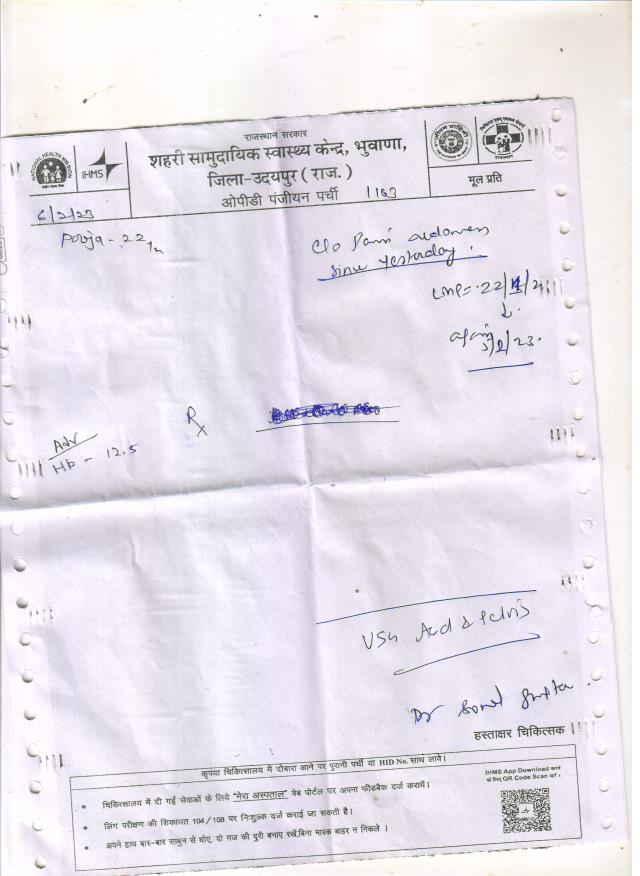 राजस्थान सरकार
शहरी सामुदायिक स्वास्थ्य केन्द्र, भुवाणा,
जिला-उदयपुर ( राज. )
ओपीडी पंजीयन पर्ची 1163
NATIONAL HEALTH MISSION
IHMS
मूल प्रति
6/2/23
Pooja - 22
C/o Pain
since yesterday.
LMP = 22/
↓
5/2/23.
Rx
Adv
Hb - 12.5
USG Abd & Pelvis
Dr Gupta
हस्ताक्षर चिकित्सक
कृपया चिकित्सालय में दोबारा आने पर पुरानी पर्ची या HID No. साथ लावें।
• चिकित्सालय में दी गई सेवाओं के लिये "मेरा अस्पताल" वेब पोर्टल पर अपना फीडबैक दर्ज करायें।
• लिंग परीक्षण की शिकायत 104/108 पर निःशुल्क दर्ज कराई जा सकती है।
• अपने हाथ बार-बार साबुन से धोए, दो गज की दुरी बनाए रखें,बिना मास्क बाहर न निकले ।
IHMS App Download करने
के लिए QR Code Scan करें ।